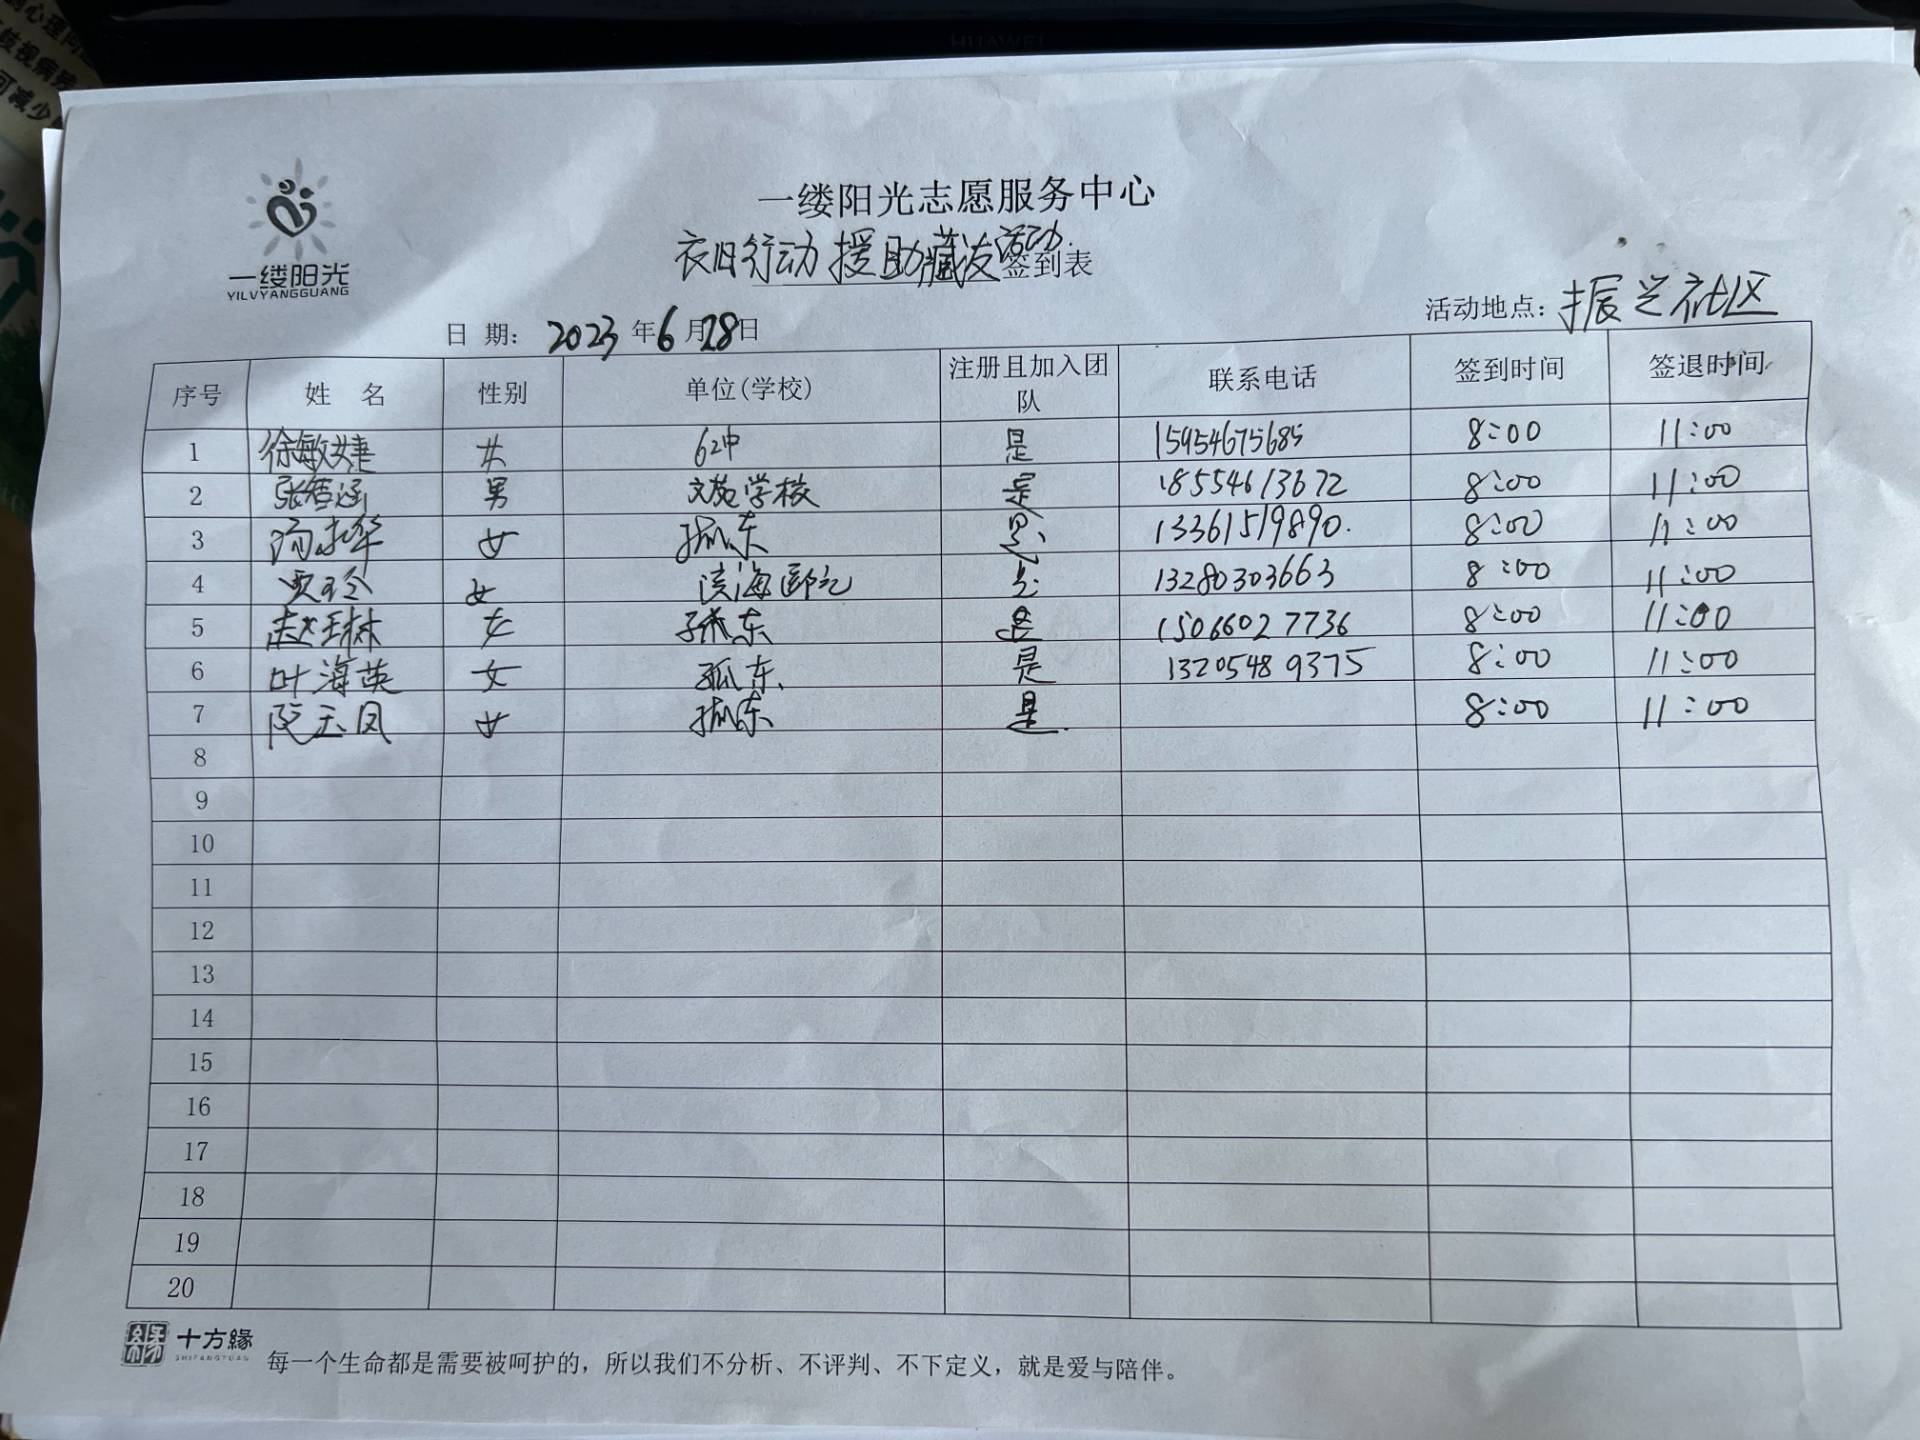 HUAWEI
一缕阳光
YILVYANGGUANG
一缕阳光志愿服务中心
衣旧行动 援助藏友活动 签到表
日 期： 2023 年 6 月 28 日
活动地点：振兴社区
序号 姓 名 性别 单位(学校) 注册且加入团队 联系电话 签到时间 签退时间
1 徐敏婕 女 62中 是 15954675685 8:00 11:00
2 张智涵 男 学校 是 18554613672 8:00 11:00
3 女 孤东 是 13361519890. 8:00 11:00
4 贾玲 女 滨海 是 13280303663 8:00 11:00
5 赵琳 女 孤东 是 15066027736 8:00 11:00
6 叶海英 女 孤东 是 13205489375 8:00 11:00
7 阮玉凤 女 孤东 是. 8:00 11:00
8
9
10
11
12
13
14
15
16
17
18
19
20
十方緣
SHIFANGYUAN
每一个生命都是需要被呵护的，所以我们不分析、不评判、不下定义，就是爱与陪伴。